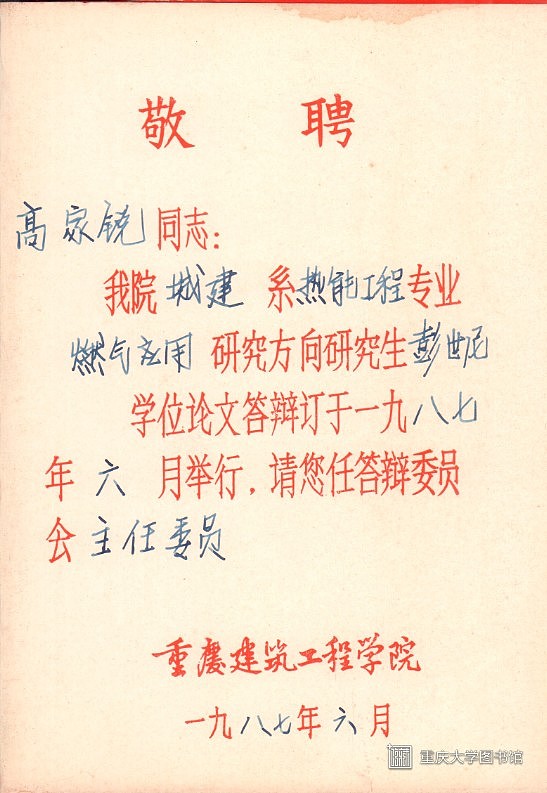 敬 聘
高家锐同志：
我院城建系热能工程专业
燃气应用研究方向研究生彭世尼
学位论文答辩订于一九八七
年六月举行，请您任答辩委员
会主任委员
重庆建筑工程学院
一九八七年六月
重庆大学图书馆